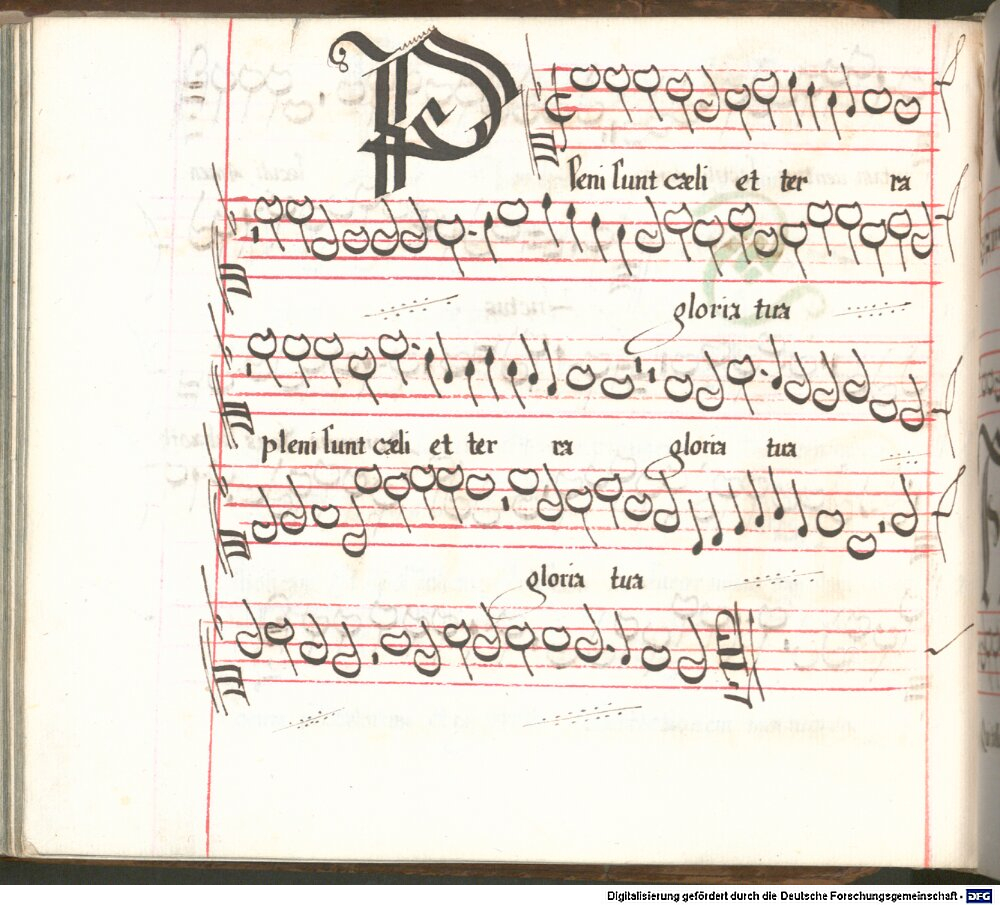 P
leni sunt cæli et ter ra
gloria tua
pleni sunt cæli et ter ra gloria tua
gloria tua
Digitalisierung gefördert durch die Deutsche Forschungsgemeinschaft - DFG